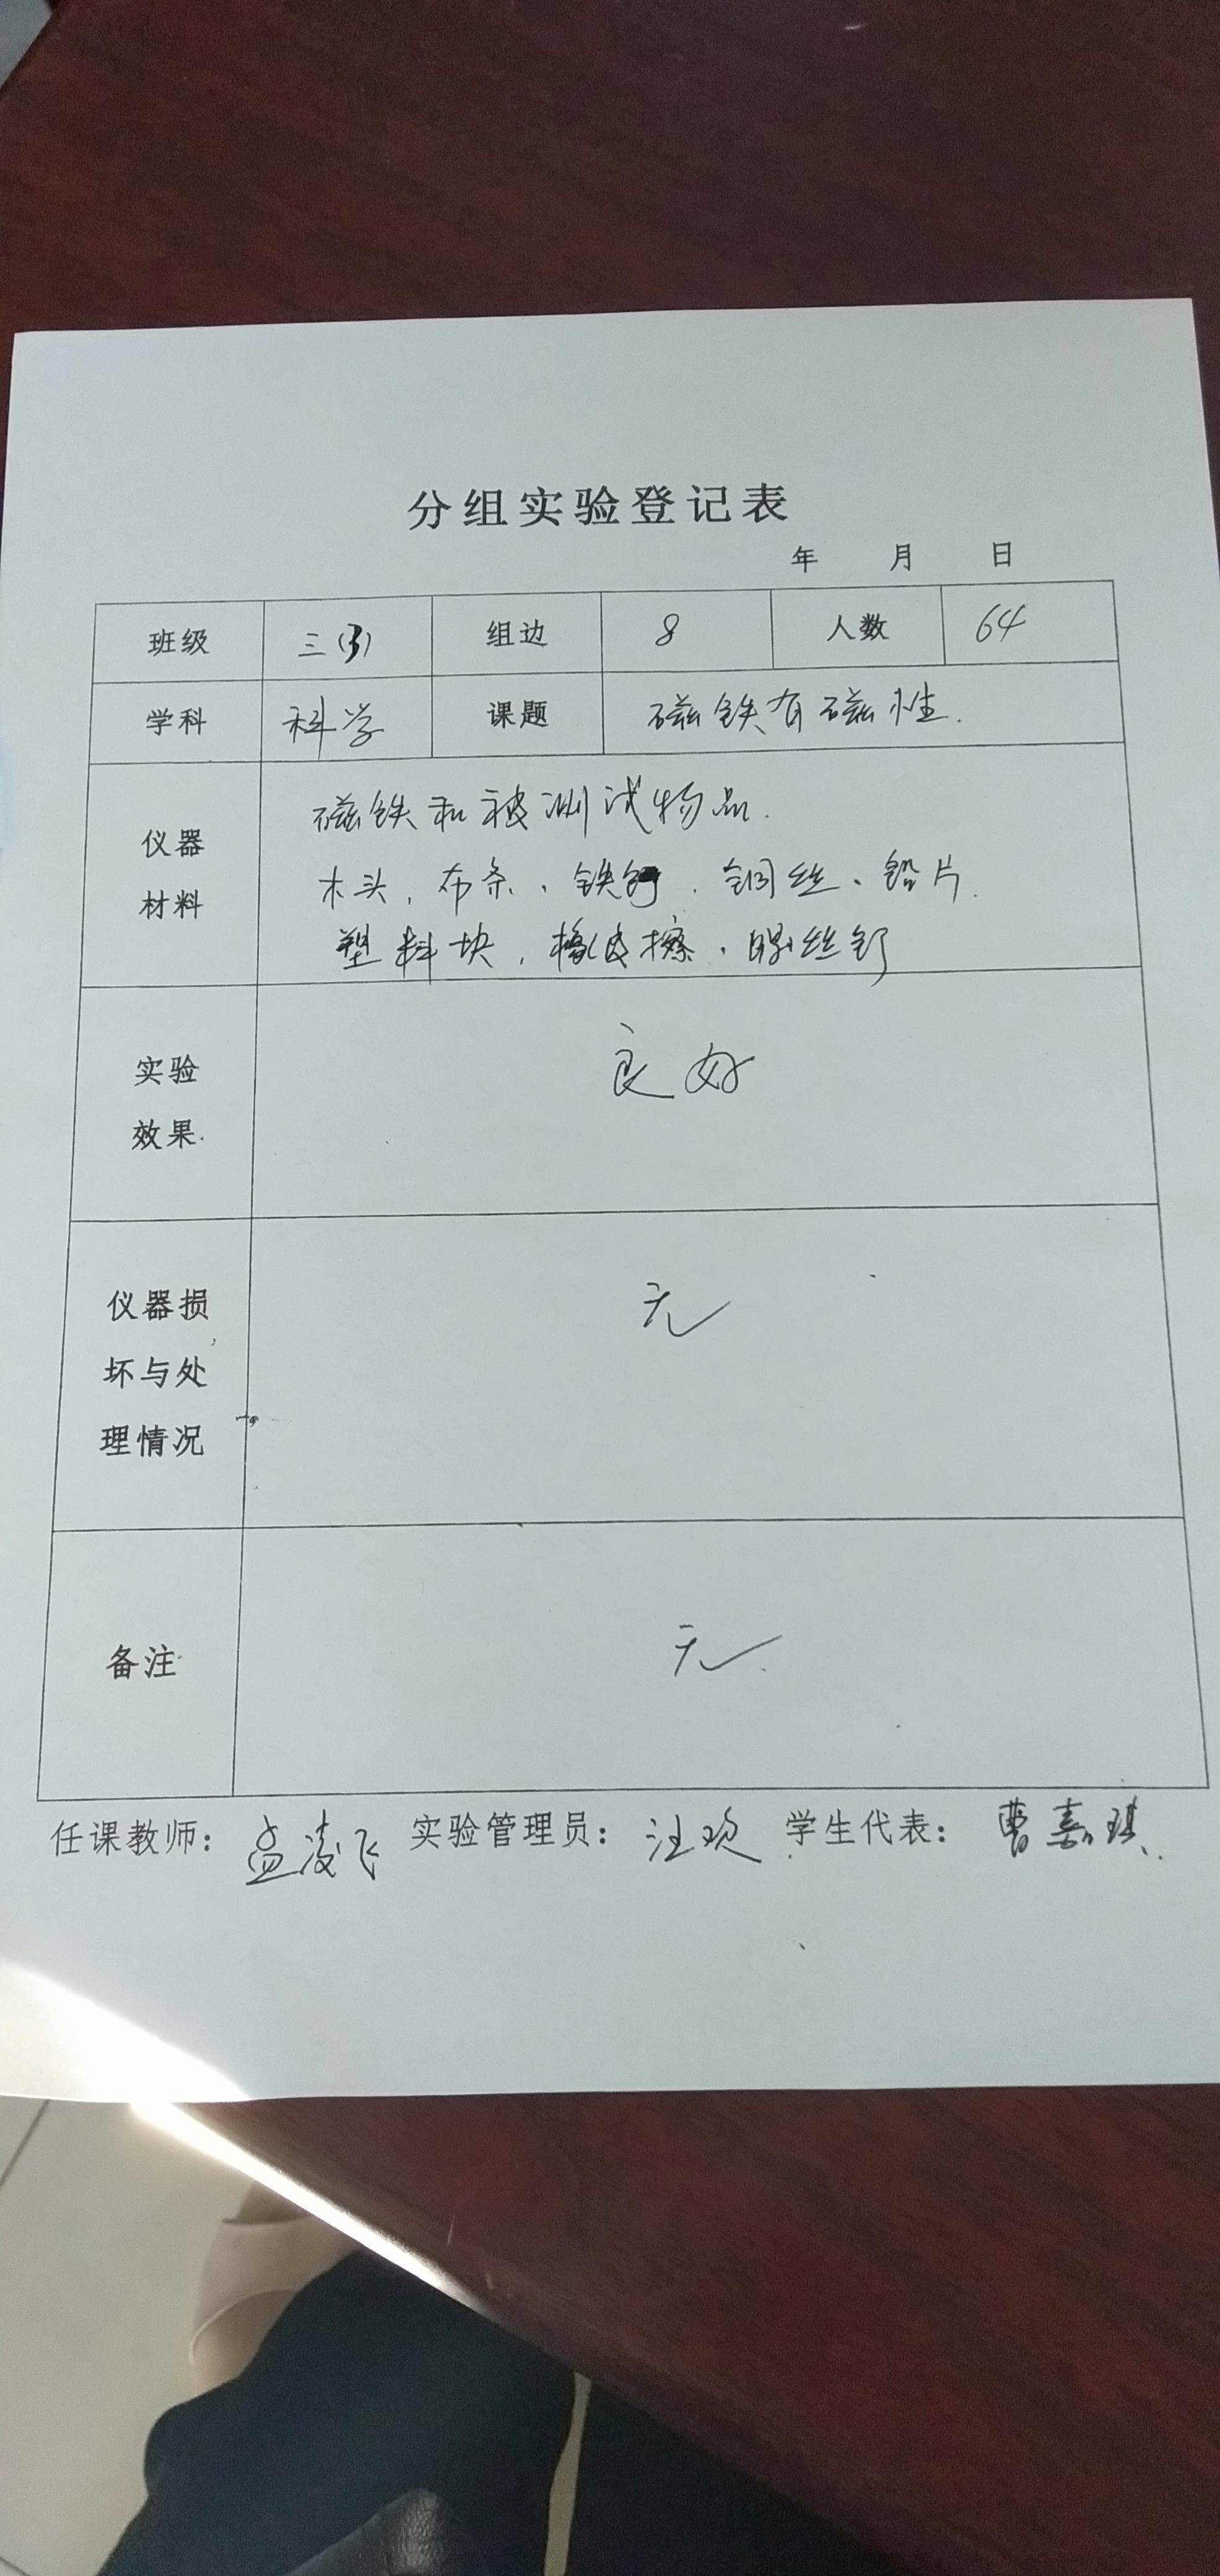 分组实验登记表
年 月 日
班级 三(3) 组边 8 人数 64
学科 科学 课题 磁铁有磁性.
仪器
材料
磁铁和被测试物品.
木头,布条、铁钉、铜丝、铅片.
塑料块,橡皮擦、螺丝钉
实验
效果
良好
仪器损
坏与处
理情况
无
备注
无.
任课教师: 孟凌飞 实验管理员: 汪欢 学生代表: 曹嘉琪